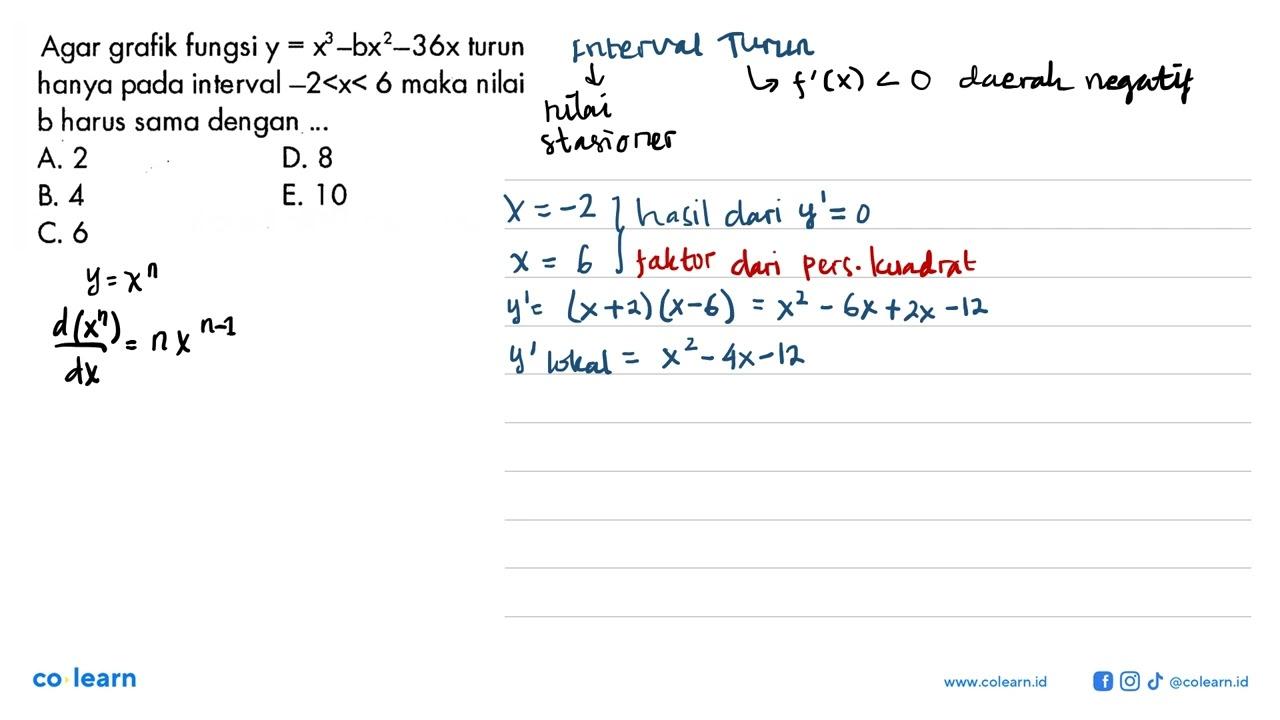 Agar grafik fungsi y = x³–bx²–36x turun
hanya pada interval –2<x< 6 maka nilai
b harus sama dengan ...
A. 2 D. 8
B. 4 E. 10
C. 6
y = xⁿ
d(xⁿ)/dx = n x^(n-1)
Interval Turun
↓
nilai
stasioner
↳ f'(x) < 0 daerah negatif
x = -2 } hasil dari y' = 0
x = 6 } faktor dari pers. kuadrat
y' = (x+2)(x-6) = x² - 6x + 2x - 12
y' lokal = x² - 4x - 12
co learn
www.colearn.id @colearn.id